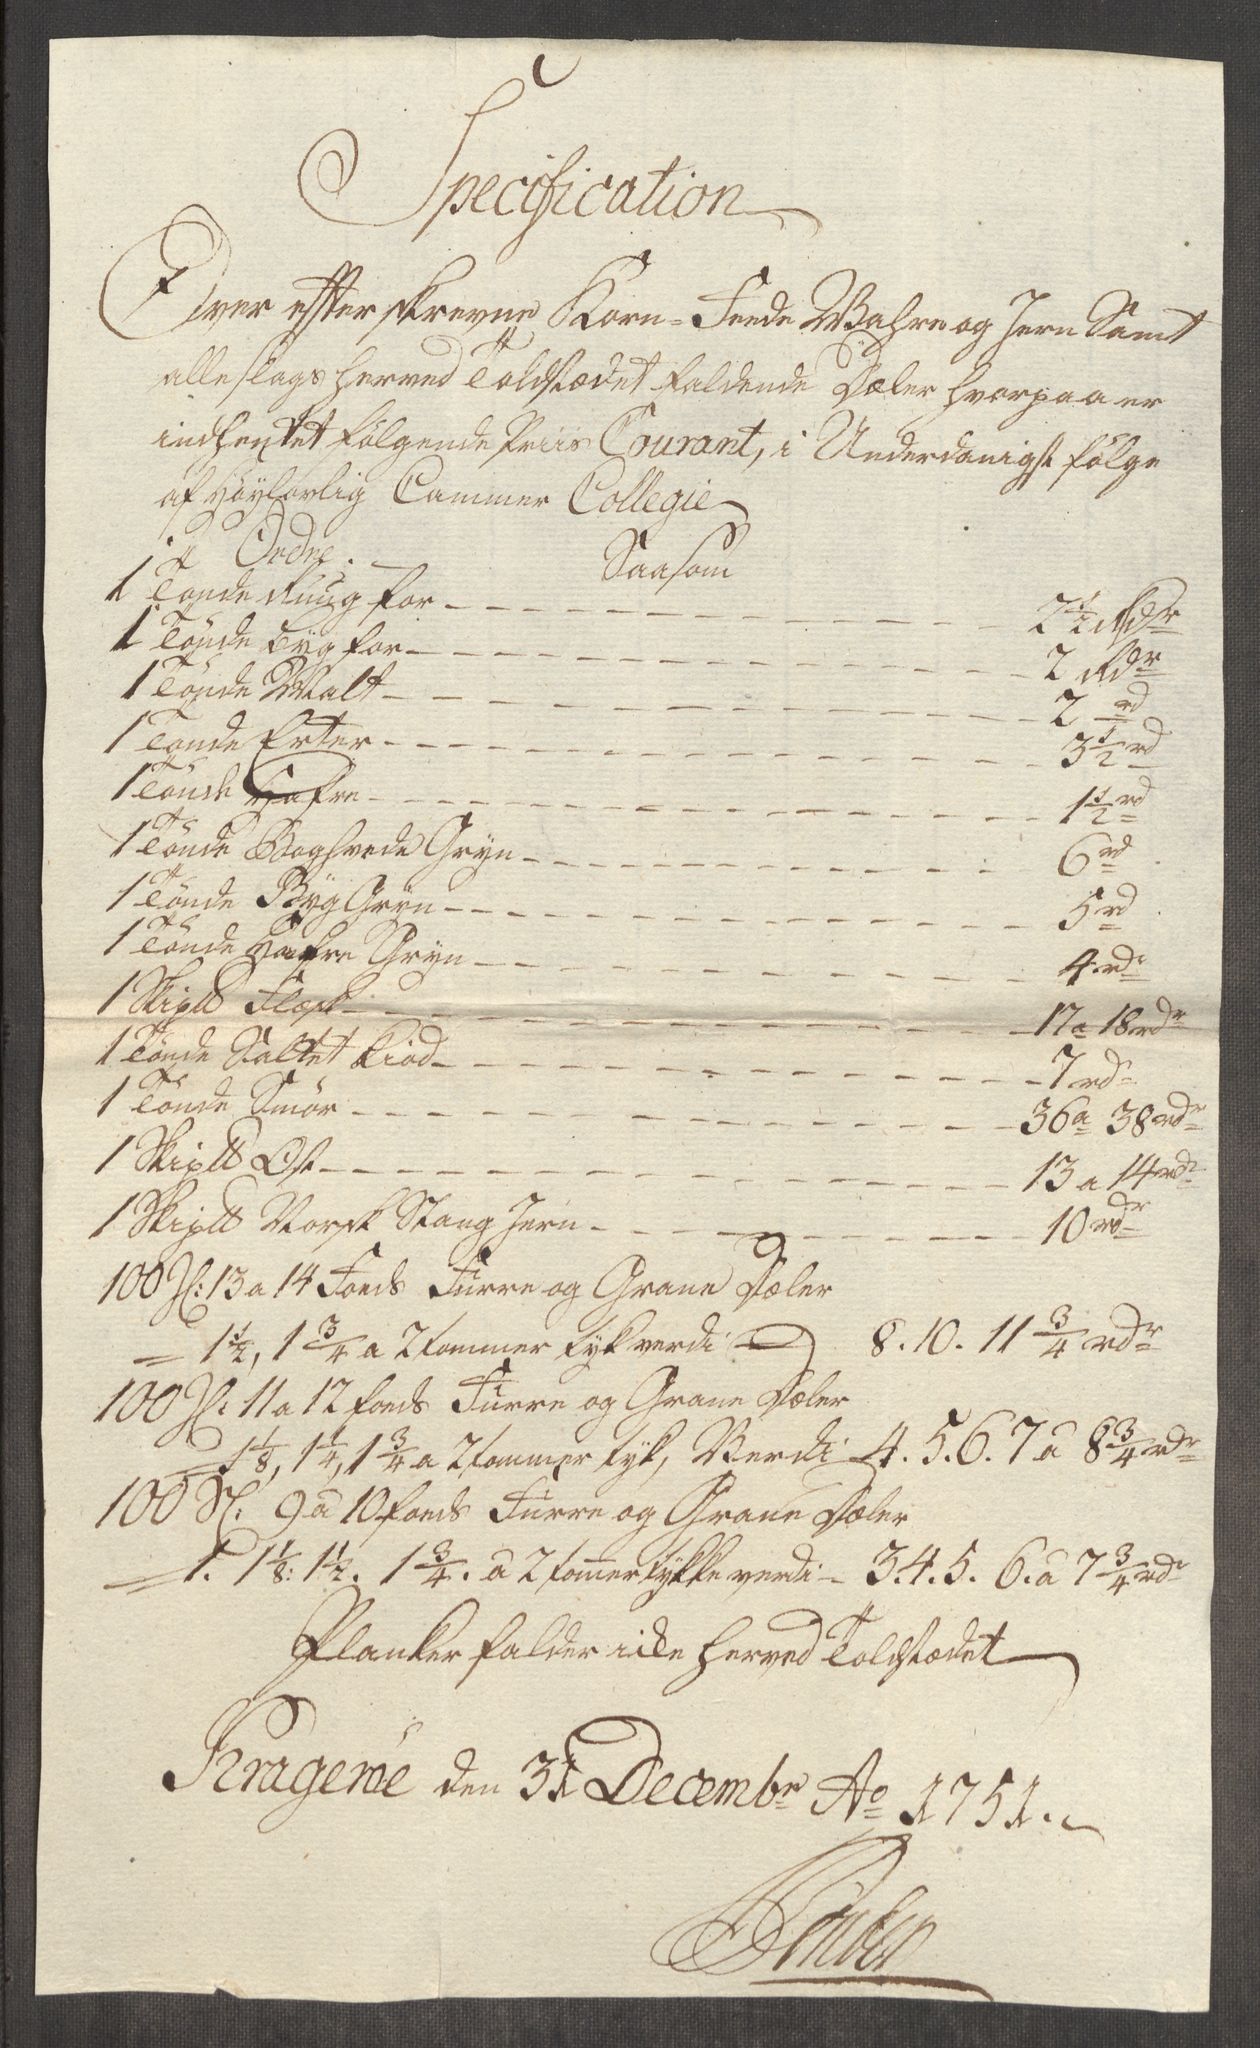 Specification
Over efterskrevne Korn- Feede Wahre og Jern Samt
alle slags herved Toldstædet faldende Dæler hvorpaa er
indhentet følgende Priis Courant, i Underdanigst følge
af Høylovlig Cammer Collegie
Ordre. Saasom
1 Tønde Ruug for 2 1/2 Rdr
1 Tønde Byg for 2 Rdr
1 Tønde Malt 2 rd
1 Tønde Erter 3 1/2 rd
1 Tønde Hafre 1 1/2 rd
1 Tønde Boghvede Gryn 6 rd
1 Tønde Byg Gryn 5 rd
1 Tønde Hafre Gryn 4 rdr
1 Skip℔ Flæsk 17 a 18 rdr
1 Tønde Saltet Kiød 7 rdr
1 Tønde Smør 36 a 38 rdr
1 Skip℔ Ost 13 a 14 rdr
1 Skip℔ Norsk Stang Jern 10 rdr
100 St: 13 a 14 Foeds Furre og Grane Dæler
= 1 1/2, 1 3/4 a 2 tommer tyk verdi 8. 10. 11 3/4 rdr
100 St: 11 a 12 foeds Furre og Grane Dæler
= 1 1/8, 1 1/4, 1 3/4 a 2 tommer tyk, Verdi 4. 5. 6. 7 a 8 3/4 rdr
100 St: 9 a 10 foeds Furre og Grane Dæler
= 1. 1 1/8: 1 1/2. 1 3/4. a 2 tom̅er tykke verdi 3. 4. 5. 6. a 7 3/4 rdr
Planker falder icke herved Toldstædet
Kragerøe den 31 Decembr Ao 1751.